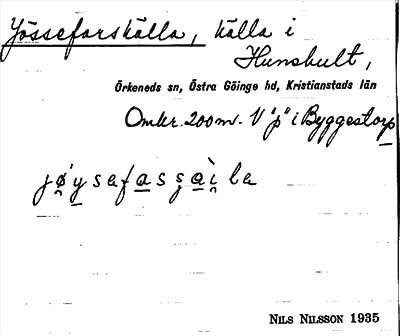 Jössefarskälla, källa i
Hunshult,
Örkeneds sn, Östra Göinge hd, Kristianstads län
Omkr. 200 m. V "p" i Byggestorp
NILS NILSSON 1935